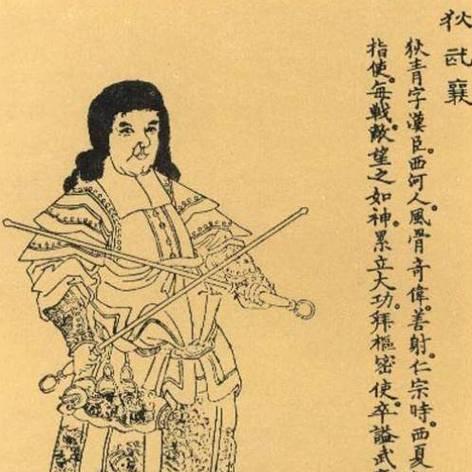 狄武襄
狄青字漢臣。西河人。風骨奇偉。善射。仁宗時。西夏
指使。每戰。敵望之如神。累立大功。拜樞密使。卒。謚武